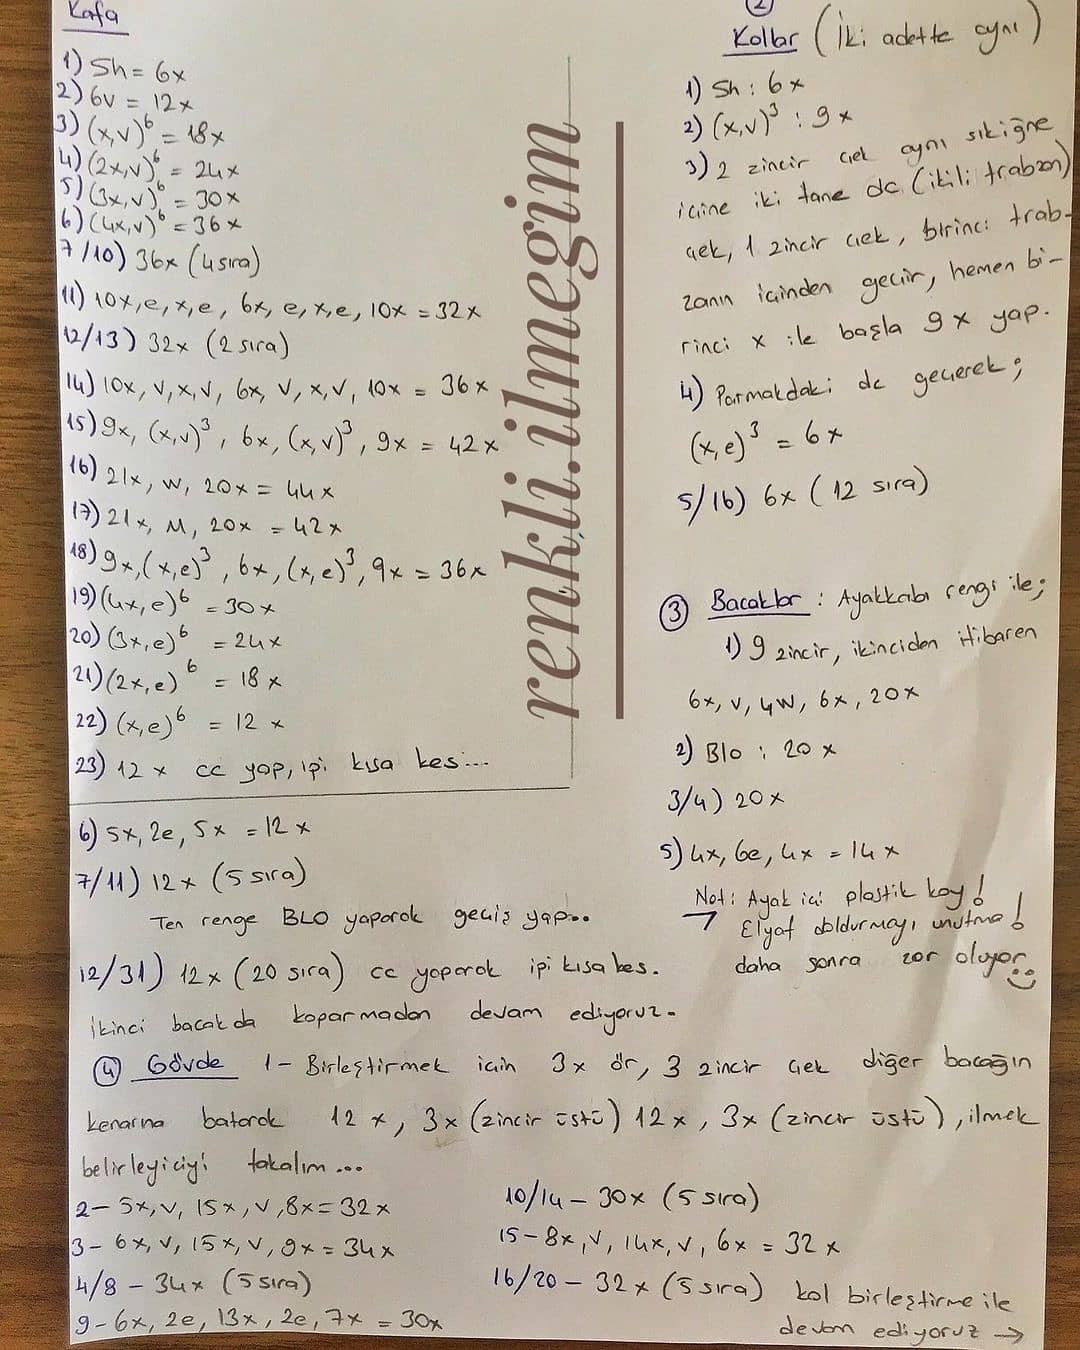 Kafa
1) Sh = 6x
2) 6v = 12x
3) (x,v)⁶ = 18x
4) (2x,v)⁶ = 24x
5) (3x,v)⁶ = 30x
6) (4x,v)⁶ = 36x
7/10) 36x (4 sıra)
11) 10x,e,x,e, 6x, e,x,e, 10x = 32x
12/13) 32x (2 sıra)
14) 10x, v,x,v, 6x, v,x,v, 10x = 36x
15) 9x, (x,v)³, 6x, (x,v)³, 9x = 42x
16) 21x, w, 20x = 44x
17) 21x, M, 20x = 42x
18) 9x,(x,e)³, 6x,(x,e)³, 9x = 36x
19) (4x,e)⁶ = 30x
20) (3x,e)⁶ = 24x
21) (2x,e)⁶ = 18x
22) (x,e)⁶ = 12x
23) 12x cc yap, ipi kısa kes...
renkli.ilmegim
2
Kollar (İki adette aynı)
1) Sh : 6x
2) (x,v)³ : 9x
3) 2 zincir çek aynı sıkiğne
içine iki tane dc (ikili trabzan)
çek, 1 zincir çek, birinci trab-
zanın içinden geçir, hemen bi-
rinci x ile başla 9x yap.
4) Parmaktaki dc geçerek;
(x,e)³ = 6x
5/16) 6x (12 sıra)
3 Bacaklar : Ayakkabı rengi ile;
1) 9 zincir, ikinciden itibaren
6x, v, 4w, 6x, 20x
2) Blo : 20x
3/4) 20x
5) 4x, 6e, 4x = 14x
Not: Ayak içi plastik koy!
Elyaf doldurmayı unutma!
daha sonra zor oluyor
6) 5x, 2e, 5x = 12x
7/11) 12x (5 sıra)
Ten renge BLO yaparak geçiş yap...
12/31) 12x (20 sıra) cc yaparak ipi kısa kes.
İkinci bacak da koparmadan devam ediyoruz.
4 Gövde 1- Birleştirmek için 3x ör, 3 zincir çek diğer bacağın
kenarına batarak 12x, 3x (zincir üstü) 12x, 3x (zincir üstü), ilmek
belirleyiciyi takalım...
2- 5x, v, 15x, v, 8x = 32x
3- 6x, v, 15x, v, 9x = 34x
4/8 - 34x (5 sıra)
9- 6x, 2e, 13x, 2e, 7x = 30x
10/14 - 30x (5 sıra)
15- 8x, v, 14x, v, 6x = 32x
16/20 - 32x (5 sıra) kol birleştirme ile
devam ediyoruz →